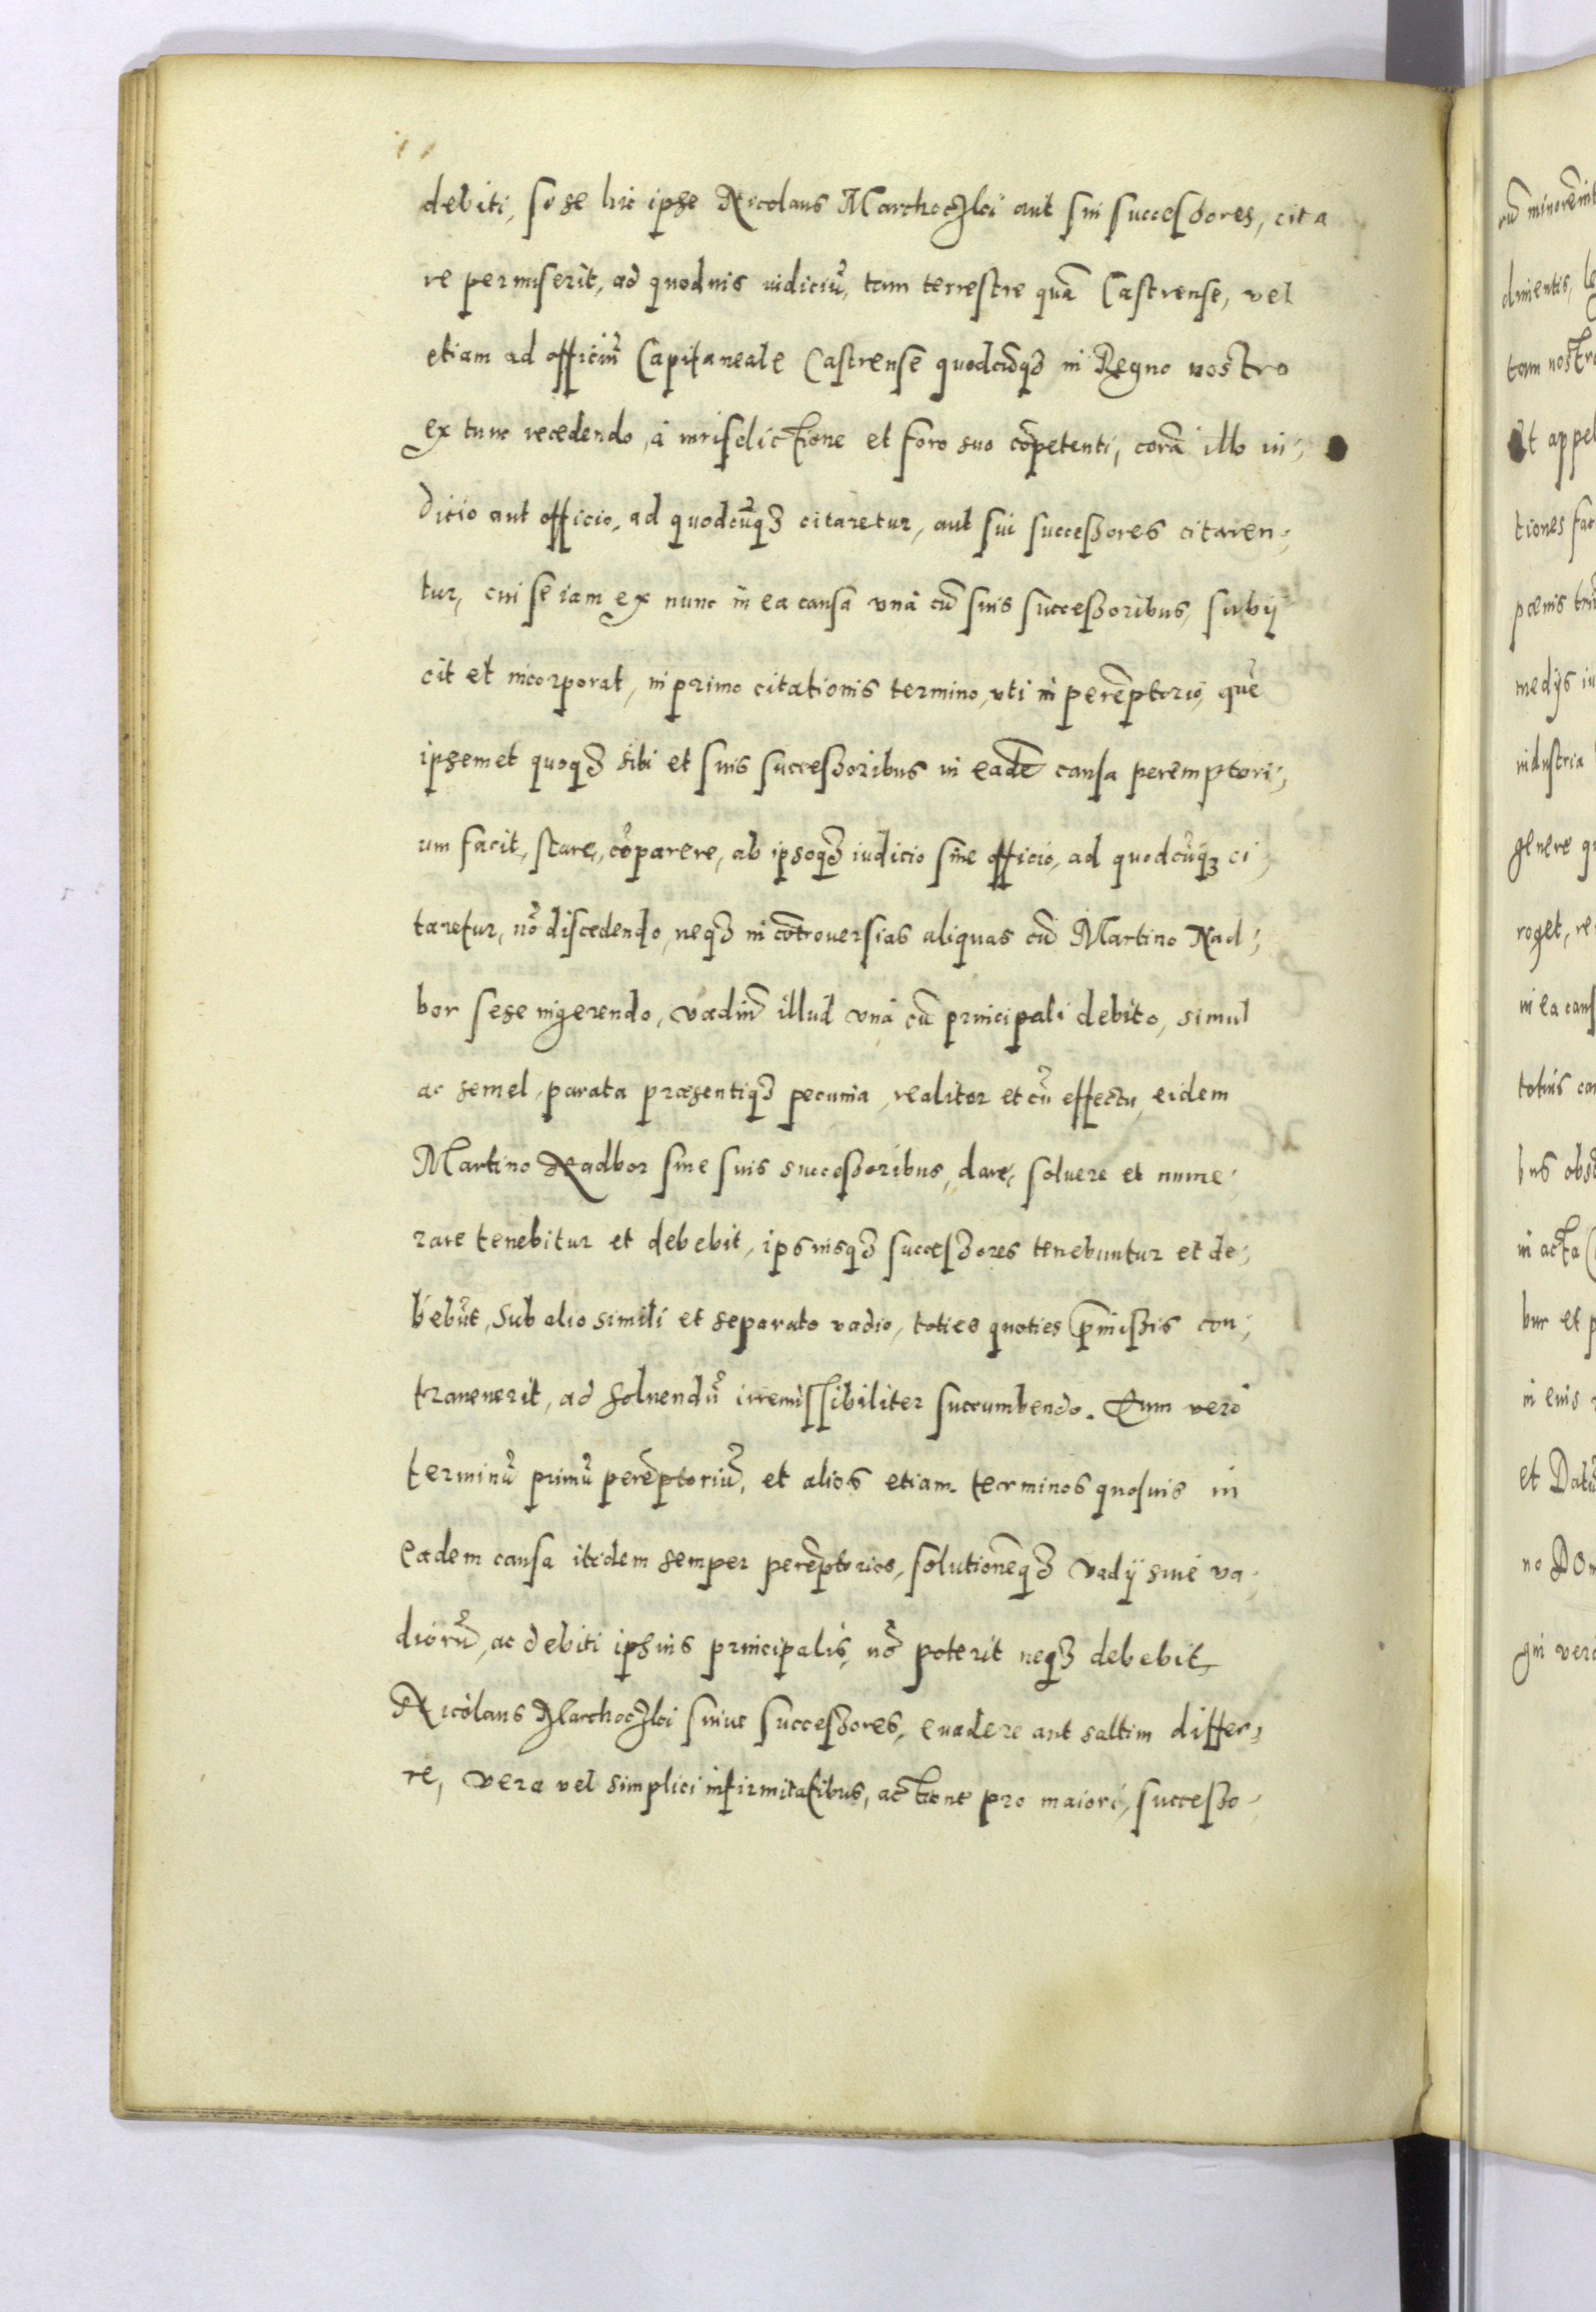 debiti, si se hic ipse Nicolaus Marchoczki aut sui successores, cita
re permiserit, ad quoduis iudiciũ, tam terrestre quã Castrense, vel
etiam ad officiũ Capitaneale Castrense quodcũqꝫ in Regno nostro
ex tunc recedendo, à iurisdictione et foro suo cõpetenti, corã illo iu,
ditio aut officio, ad quodcũqꝫ citaretur, aut sui successores citaren,
tur, cui se iam ex nunc in ea causa vnà cũ suis successoribus, subij
cit et incorporat, in primo citationis termino, vti in perẽptorio, quẽ
ipsemet quoqꝫ sibi et suis successoribus in eadẽ causa peremptori,
um facit, stare, cõparere, ab ipsoqꝫ iudicio siue officio, ad quodcũqꝫ ci,
taretur, nõ discedendo, neqꝫ in cõtrouersias aliquas cũ Martino Nad,
bor sese ingerendo, vadiũ illud vnà cũ principali debito, simul
ac semel, parata præsentiqꝫ pecunia, realiter et cũ effectu, eidem
Martino Nadbor siue suis successoribus, dare, soluere et nume,
rare tenebitur et debebit, ipsiusqꝫ successores tenebuntur et de,
bebũt, sub alio simili et separato vadio, toties quoties p̃missis con,
trauenerit, ad soluendũ irremissibiliter succumbendo. Eum vero
terminũ primũ perẽptoriũ, et alios etiam terminos quosuis in
eadem causa itidem semper perẽptorios, solutionẽqꝫ vadij siue va,
diorũ, ac debiti ipsius principalis, nõ poterit neqꝫ debebit
Nicolaus Marchoczki suiue successores, euadere aut saltim differ,
re, vera vel simplici infirmitatibus, actione pro maiori, successo,